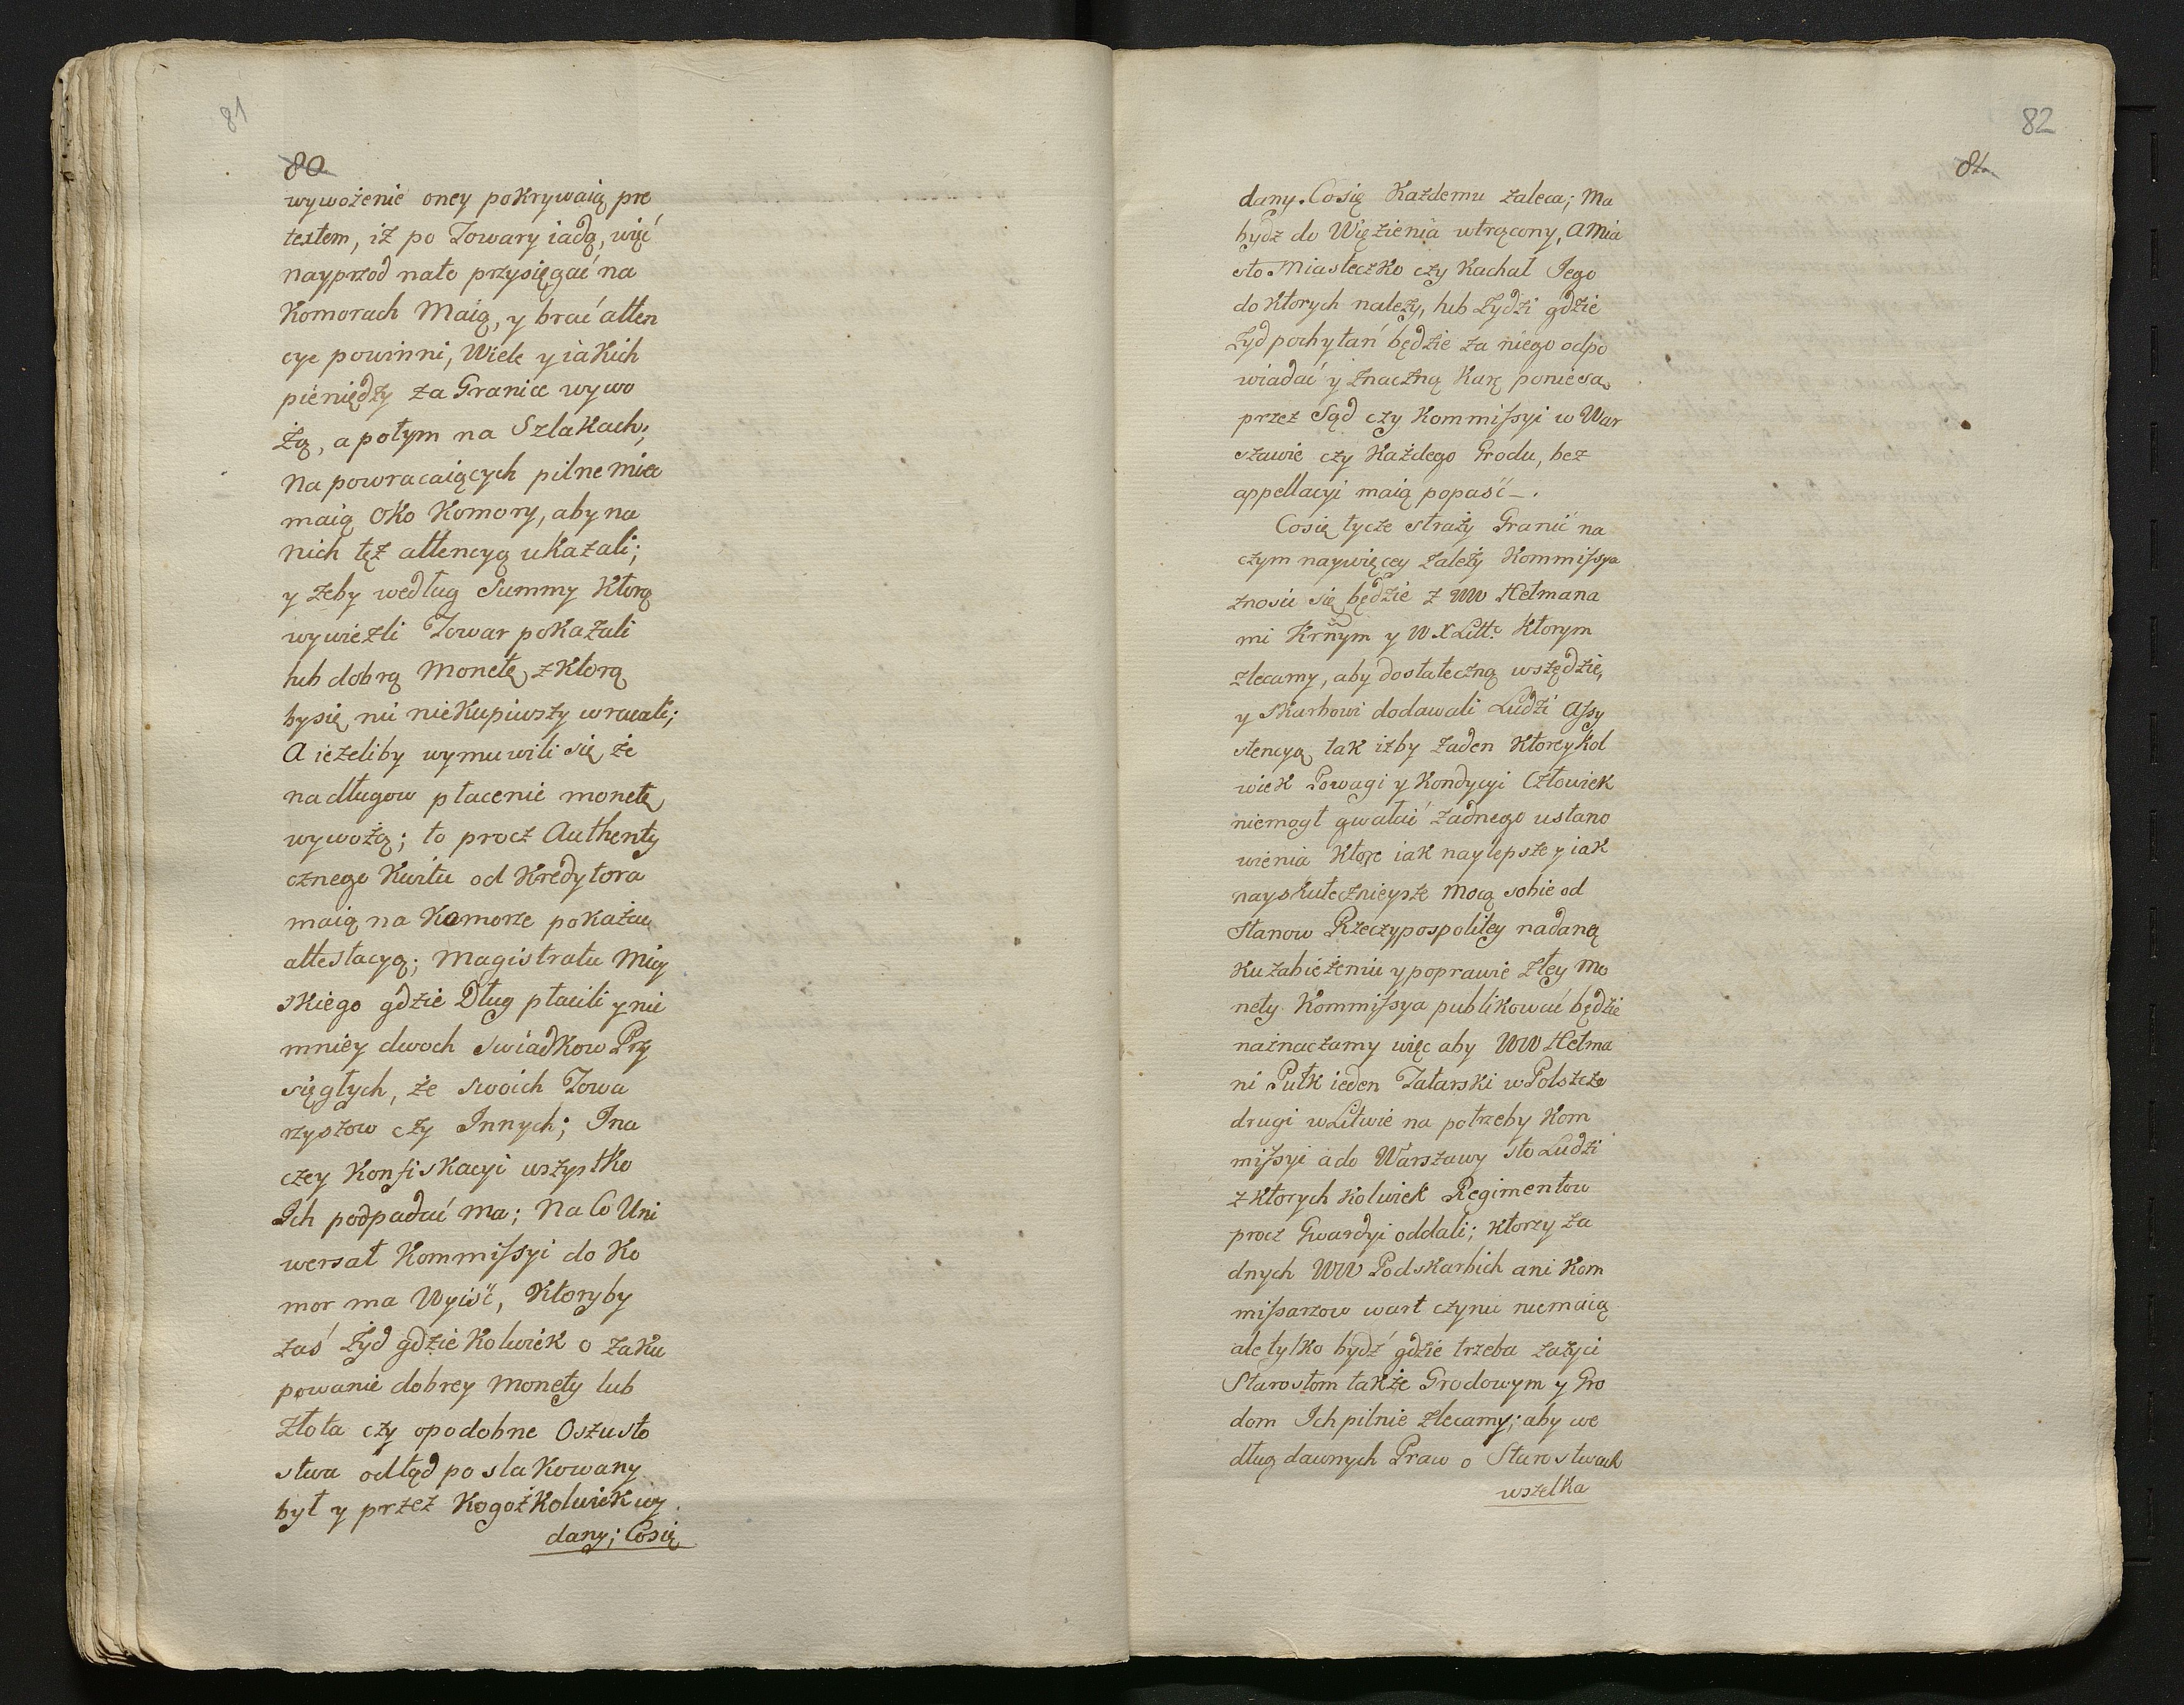 81
80
wywożenie oney pokrywaią pre
textem, iż po Towary iadą, więć
nayprzod nato przysięgać na
Komorach Maią, y brać atten
cye powinni, Wiele y iakich
pieniędzy za Granice wywo
żą, a potym na Szlakach;
Na powracaiących pilne miec
maią Oko Komory, aby na
nich też attencyą ukazali;
y żeby według Summy Ktorą
wywieźli Towar pokazali
lub dobrą Monetę z Ktorą
bysię nic niekupiwszy wracali;
A ieżeliby wymuwili się że
nadługow płacenie monetę
wywożą; to procz Authenty
cznego Kwitu od Kredytora
maią na Komorze pokazac
attestacyą; Magistratu Miey
skiego gdzie Dług płacili y nie
mniey dwoch swiadkow Przy
sięgłych, że swoich Towa
rzyszow czy Innych; Ina
czey Konfiskacyi wszystko
Ich podpadać ma; Na Co Uni
wersał Kommissyi do Ko
mor ma Wyiść, Ktoryby
zaś Żyd gdzie Kolwiek o zaku
powanie dobrey Monety lub
złota czy opodobne Oszusto
stwa odtąd poslakowany
był y przez Kogożkolwiek wy
dany; Cosię
82
81
dany. Cosię Każdemu zaleca; Ma
bydz do Więzienia wtrącony, A Mia
sto Miasteczko czy Kachał Jego
do Ktorych należy, lub Żydzi gdzie
Żyd pochytań będzie za niego odpo
wiadać y znaczną Karę poniesą
przez Sąd czy Kommissyi w War
szawie czy Każdego Grodu, bez
appellacyi maią popaść.
Cosię tycze straży Granić na
czym naywięcey zależy Kommissya
znosic się będzie z WW Hetmana
mi Krñym y W X Litt: Ktorym
zlecamy, aby dostateczną wszędzie,
y Skarbowi dodawali Ludzi Assy
stencyą tak iżby żaden Ktoreykol
wiek Powagi y Kondycyi Człowiek
niemogł gwałcić żadnego ustano
wienia Ktore iak naylepsze y iak
nayskutecznieysze Mocą sobie od
Stanow Rzeczypospolitey nadaną
Ku zabieżeniu y poprawie złey Mo
nety Kommissya publikować będzie
naznaczamy więc aby WW Hetma
ni Pułk ieden Tatarski w Polszcze
drugi w Litwie na potrzeby Kom
missyi a do Warszawy sto Ludzi
z Ktorych kolwiek Regimentow
procz Gwardyi oddali; ktorzy ża
dnych WW Podskarbich ani Kom
missarzow wart czynic niemaią
ale tylko bydź gdzie trzeba zażyci
Starostom także Grodowym y Gro
dom Ich pilnie zlecamy; aby we
dług dawnych Praw o Starostwach
wszelka